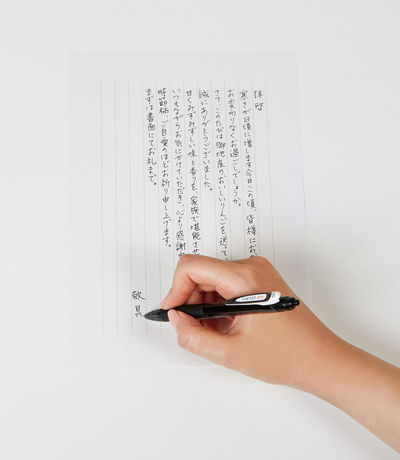 拝啓
寒さが日増に増します今日この頃、皆様にお
お変わりなくお過ごしでしょうか。
さて、このたびは御地産のおいしいりんごを送って
誠にありがとうございました。
甘くみずみずしい味と香りを、家族で堪能させ
いつもながらお気にかけていただき、心より感謝
時節柄、ご自愛のほどお祈り申し上げます。
まずは書面にてお礼まで。
敬具
SARASA